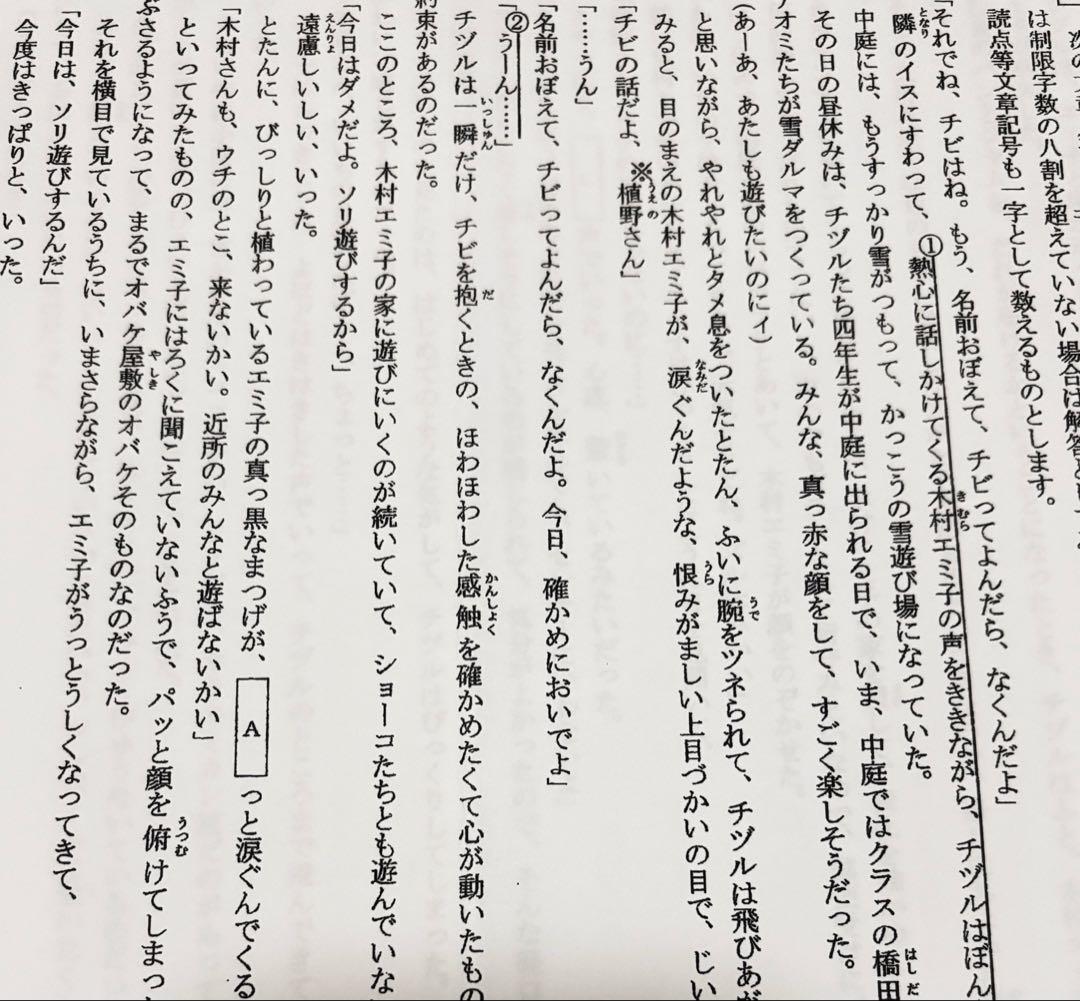 は制限字数の八割を超えていない場合は解答と
読点等文章記号も一字として数えるものとします。
「それでね、チビはね。もう、名前おぼえて、チビってよんだら、なくんだよ」
隣のイスにすわって、①熱心に話しかけてくる木村エミ子の声をききながら、チヅルはぼん
中庭には、もうすっかり雪がつもって、かっこうの雪遊び場になっていた。
その日の昼休みは、チヅルたち四年生が中庭に出られる日で、いま、中庭ではクラスの橋田
ナオミたちが雪ダルマをつくっている。みんな、真っ赤な顔をして、すごく楽しそうだった。
(あーあ、あたしも遊びたいのにィ)
と思いながら、やれやれとタメ息をついたとたん、ふいに腕をツネられて、チヅルは飛びあが
みると、目のまえの木村エミ子が、涙ぐんだような、恨みがましい上目づかいの目で、じい
「チビの話だよ、※植野さん」
「……うん」
「名前おぼえて、チビってよんだら、なくんだよ。今日、確かめにおいでよ」
「②うーん……」
チヅルは一瞬だけ、チビを抱くときの、ほわほわした感触を確かめたくて心が動いたもの
約束があるのだった。
ここのところ、木村エミ子の家に遊びにいくのが続いていて、ショーコたちとも遊んでいな
「今日はダメだよ。ソリ遊びするから」
遠慮しいしい、いった。
とたんに、びっしりと植わっているエミ子の真っ黒なまつげが、 A っと涙ぐんでくる
「木村さんも、ウチのとこ、来ないかい。近所のみんなと遊ばないかい」
といってみたものの、エミ子にはろくに聞こえていないふうで、パッと顔を俯けてしまっ
ぶさるようになって、まるでオバケ屋敷のオバケそのものなのだった。
それを横目で見ているうちに、いまさらながら、エミ子がうっとうしくなってきて、
「今日は、ソリ遊びするんだ」
今度はきっぱりと、いった。